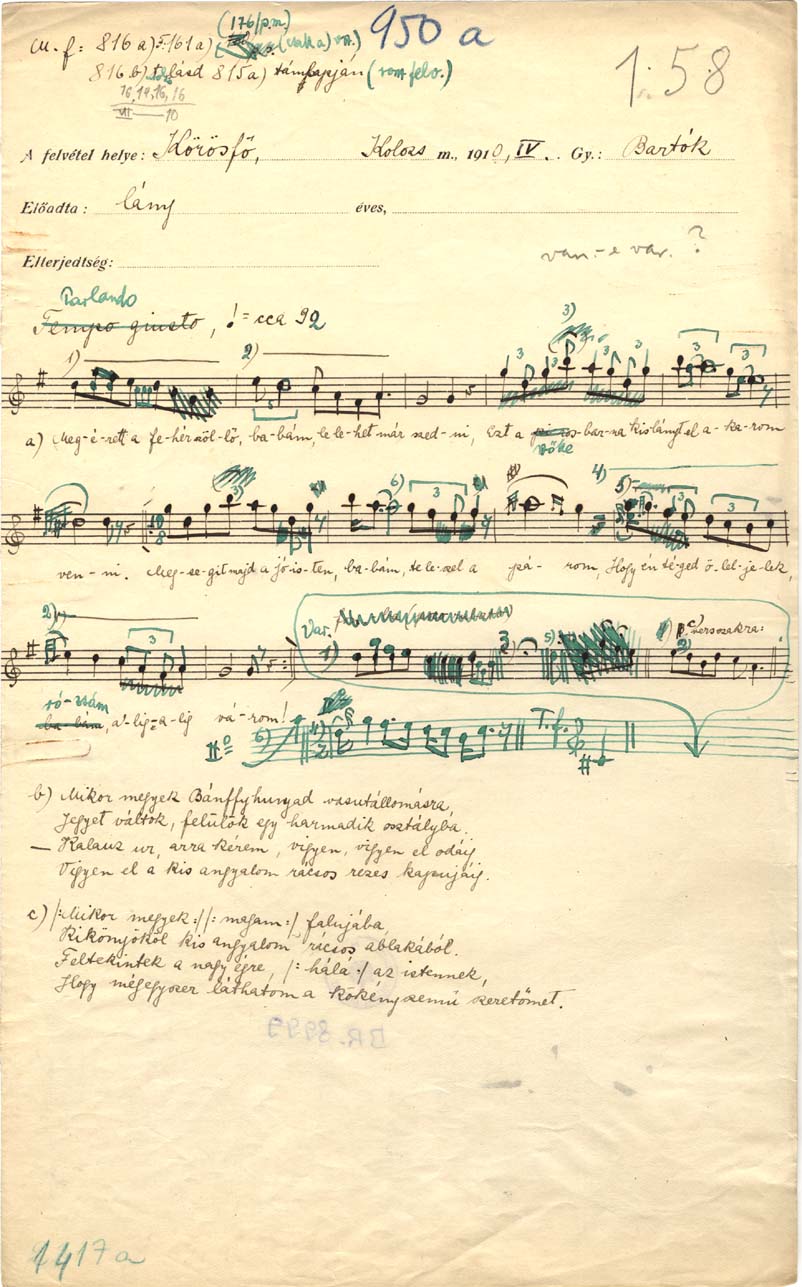 (176/p.m.)
M. f: 816 a) F. 161 a) (csak a) v.) 950 a
816 b) lásd 815 a) támlapján (rom. felv.) 1:58
16, 14, 16, 16
VII — 10
A felvétel helye: Körösfő, Kolozs m., 1910, IV. Gy.: Bartók
Előadta: lány éves,
van-e var. ?
Elterjedtség:
Parlando
Tempo giusto, = cca 92
1) 2) 3) 3 3 3 3 3
a) Meg-é-rett a fe-hér sző-lő, ba-bám, le le-het már szed-ni, Ezt a bar-na kis lányt el a-ka-rom
szőke
3) 6) 3 4) 5) 3 3
ven-ni. Meg-se-gít majd a jó is-ten, ba-bám, te le-szel a pá-rom, Hogy én té-ged ö-lel-je-lek,
2) 3 Var. 1) 3 5) 2) versszakra:
ró-zsám
ba-bám, a-lig-a-lig vá-rom!
6) T. f.
b) Mikor megyek Bánffyhunyad vasutállomásra,
Jegyet váltok, felülök egy harmadik osztályba.
— Kalauz ur, arra kérem, vigyen, vigyen el odáig
Vigyen el a kis angyalom rácsos rezes kapujáig.
c) |: Mikor megyek :| |: magam :| falujába,
Kikönyököl kis angyalom rácsos ablakából.
Feltekintek a nagy égre, |: hálá :| az istennek,
Hogy mégegyszer láthatom a kökényszemü szeretőmet.
1417a